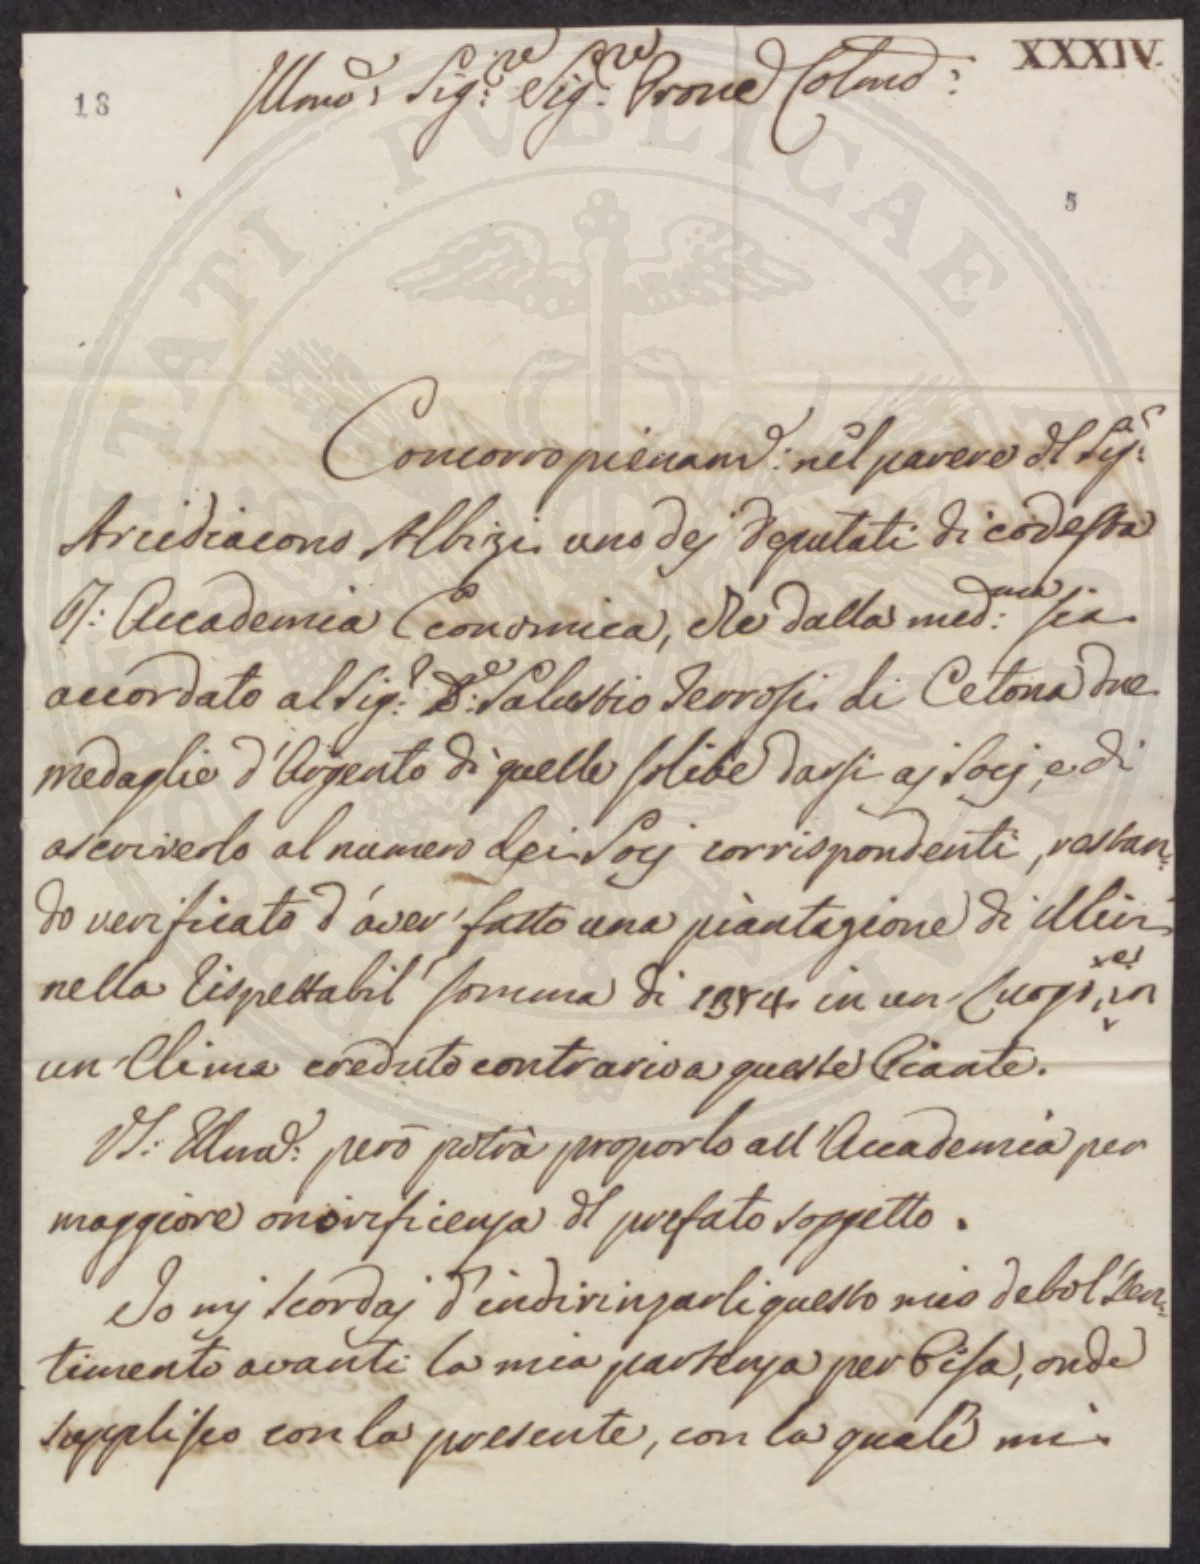 XXXIV.
18
Illmo: Sig:re Sig:re Prone Colmo:
5
Concorro pienam:e nel parere del Sig:r
Arcidiacono Albizi uno dej Deputati di codesta
R: Accademia Economica, che dalla med:ma sia
accordato al Sig:r D:e Salustio Terrosi di Cetona due
medaglie d'Argento di quelle solite darsi aj Socj, e di
ascriverlo al numero dei Socj corrispondenti, restan:
do verificato d'aver' fatto una piantagione di Ulivi
nella rispettabil' somma di 1384 in un Luogo, ed in
un Clima creduto contrario a queste Piante.
VS: Illma: però potrà proporlo all'Accademia per
maggiore onorificenza del prefato soggetto.
Io mj scordaj d'indirinzarli questo mio debol' Sen:
timento avanti la mia partenza per Pisa, onde
supplisco con la presente, con la quale mi
PVBLICAE